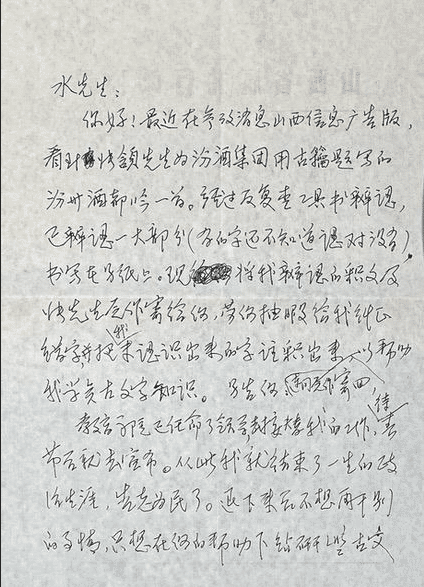 水先生：
你好！最近在参考消息山西信息广告版，
看到 颔先生为汾酒集团用古籀题写的
汾州酒都吟一首。经过反复查工具书辩认，
已辩认一大部分（有的字还不知道认对没有）
书写在另纸上。现 将我辩认的释文及
先生 作寄给你，劳你抽暇给我纠正
错字，并把我未认识出来的字注释出来，以帮助
我学点古文字知识。
教育部已任命了 接替我的工作，待春
节后就去宣布。从此我就结束了一生的政
治生涯，告老为民了。退下来后不想再干别
的事情，只想在你的帮助下钻研一些古文